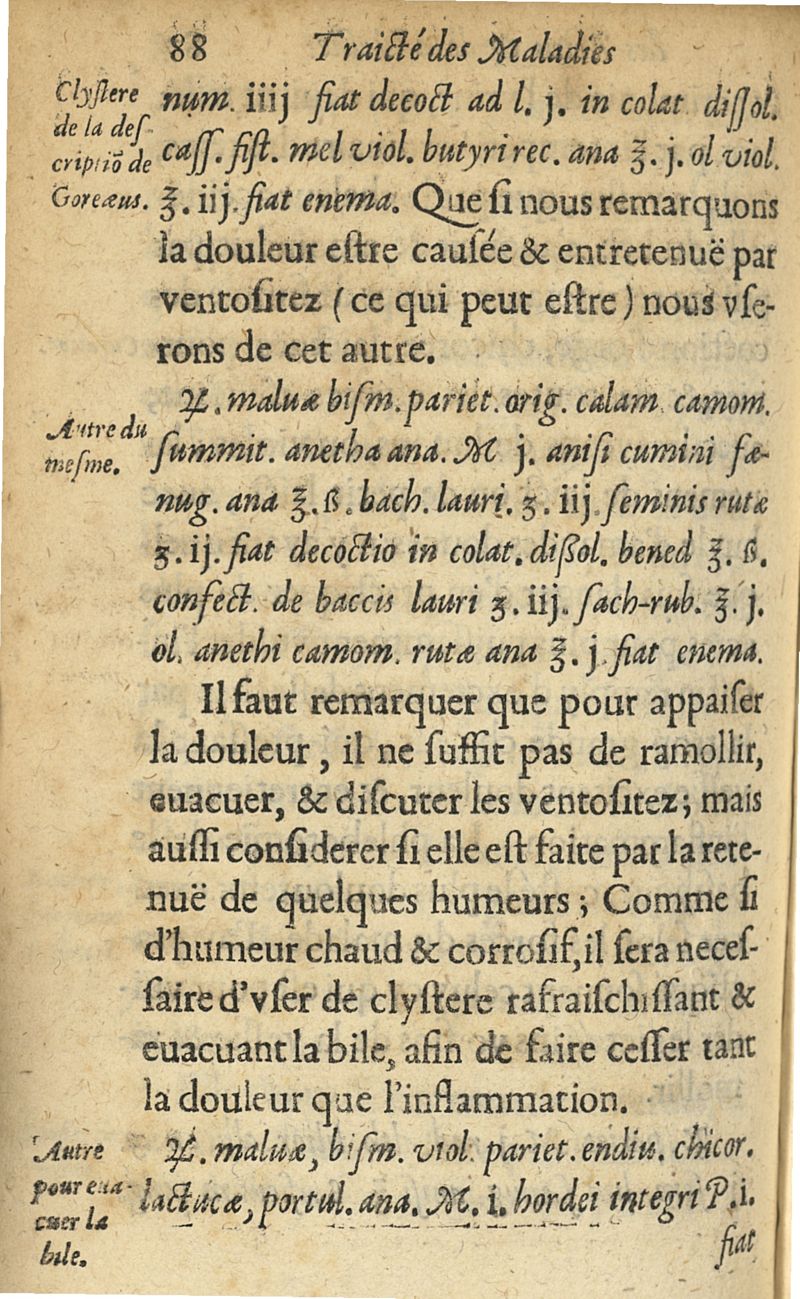 88 Traicté des Maladies
Clyſtere
de la deſ-
criptiõ de
Goreæus.
num. iiij fiat decoct ad l. j. in colat diſſol.
caſſ. fiſt. mel viol. butyri rec. ana ℥. j. ol viol.
℥. iij. fiat enema. Que ſi nous remarquons
la douleur eſtre cauſée & entretenuë par
ventoſitez (ce qui peut eſtre) nous vſe-
rons de cet autre.
Autre du
meſme.
♃. maluæ biſm. pariet. orig. calam. camom.
ſummit. anetha ana. M j. aniſi cumini fæ-
nug. ana ℥. ß. bach. lauri. ʒ. iij. ſeminis rutæ
ʒ. ij. fiat decoctio in colat. dißol. bened ℥. ß.
confect. de baccis lauri ʒ. iij. ſach-rub. ℥. j.
ol. anethi camom. rutæ ana ℥. j. fiat enema.
Il faut remarquer que pour appaiſer
la douleur, il ne ſuffit pas de ramollir,
euacuer, & diſcuter les ventoſitez; mais
auſſi conſiderer ſi elle eſt faite par la rete-
nuë de quelques humeurs; Comme ſi
d'humeur chaud & corroſif, il ſera neceſ-
ſaire d'vſer de clyſtere rafraiſchiſſant &
euacuant la bile, afin de faire ceſſer tant
la douleur que l'inflammation.
Autre
pour eua-
cuer la
bile.
♃. maluæ, biſm. viol. pariet. endiu. chicor.
lactucæ, portul. ana. M. i. hordei integri P. i.
fiat